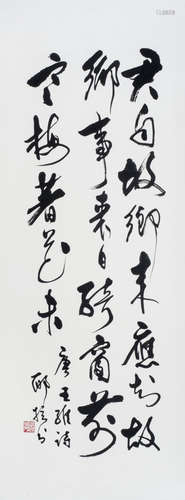 君自故鄉來應知故
鄉事來日綺窗前
寒梅著花未
唐王維詩